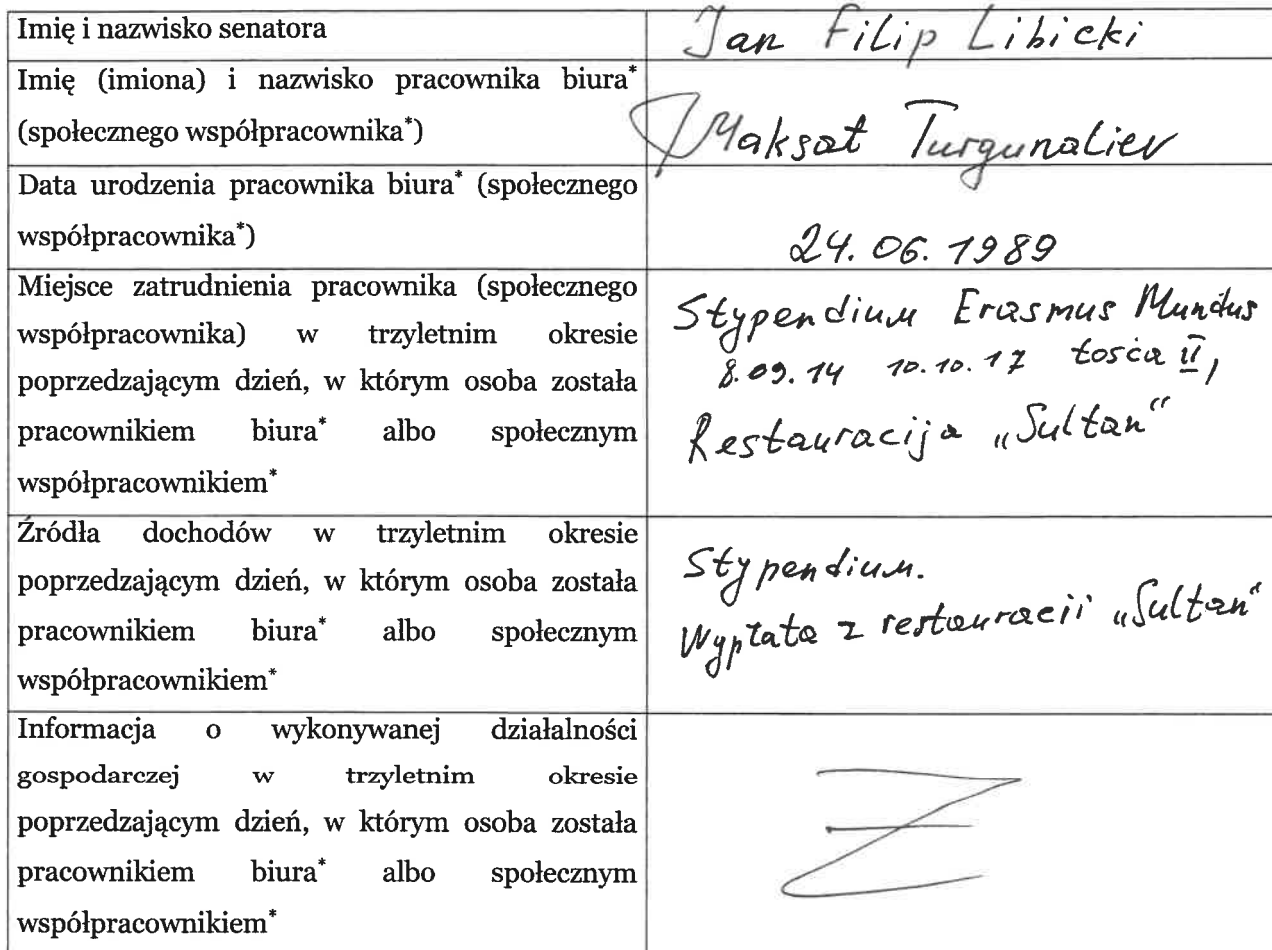 Imię i nazwisko senatora
Jan Filip Libicki
Imię (imiona) i nazwisko pracownika biura*
(społecznego współpracownika*)
Maksat Turgunaliev
Data urodzenia pracownika biura* (społecznego
współpracownika*)
24.06.1989
Miejsce zatrudnienia pracownika (społecznego
współpracownika) w trzyletnim okresie
poprzedzającym dzień, w którym osoba została
pracownikiem biura* albo społecznym
współpracownikiem*
Stypendium Erasmus Mundus
8.09.14 10.10.17 II,
Restauracija „Sultan“
Źródła dochodów w trzyletnim okresie
poprzedzającym dzień, w którym osoba została
pracownikiem biura* albo społecznym
współpracownikiem*
Stypendium.
Wypłata z restauracii „Sultan“
Informacja o wykonywanej działalności
gospodarczej w trzyletnim okresie
poprzedzającym dzień, w którym osoba została
pracownikiem biura* albo społecznym
współpracownikiem*